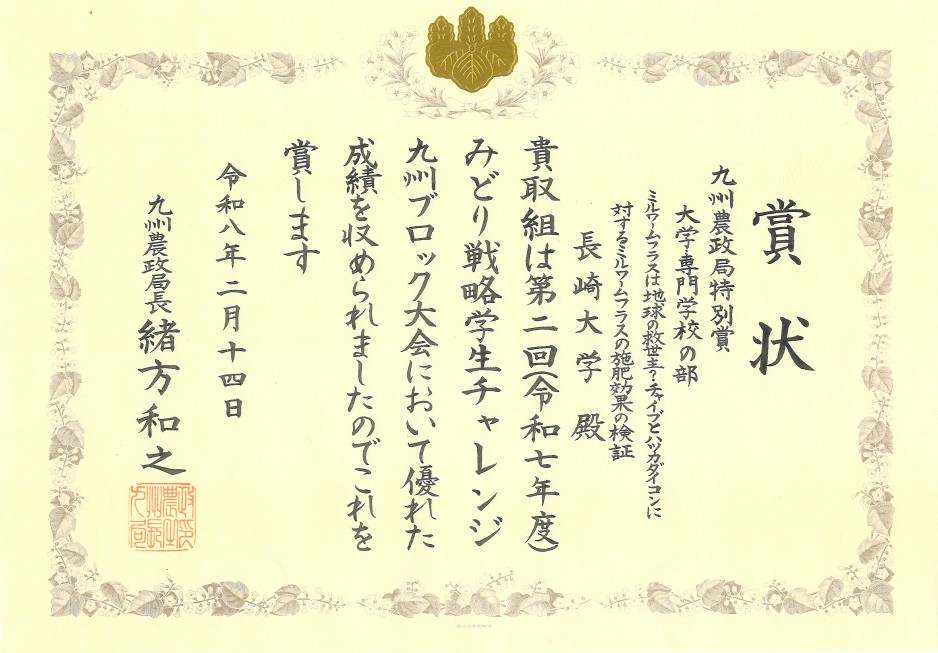 賞状
九州農政局特別賞
大学・専門学校の部
ミルワームフラスは地球の救世主?チャイブとハツカダイコンに
対するミルワームフラスの施肥効果の検証
長崎大学 殿
貴取組は第二回(令和七年度)
みどり戦略学生チャレンジ
九州ブロック大会において優れた
成績を収められましたのでこれを
賞します
令和八年二月十四日
九州農政局長 緒方和之